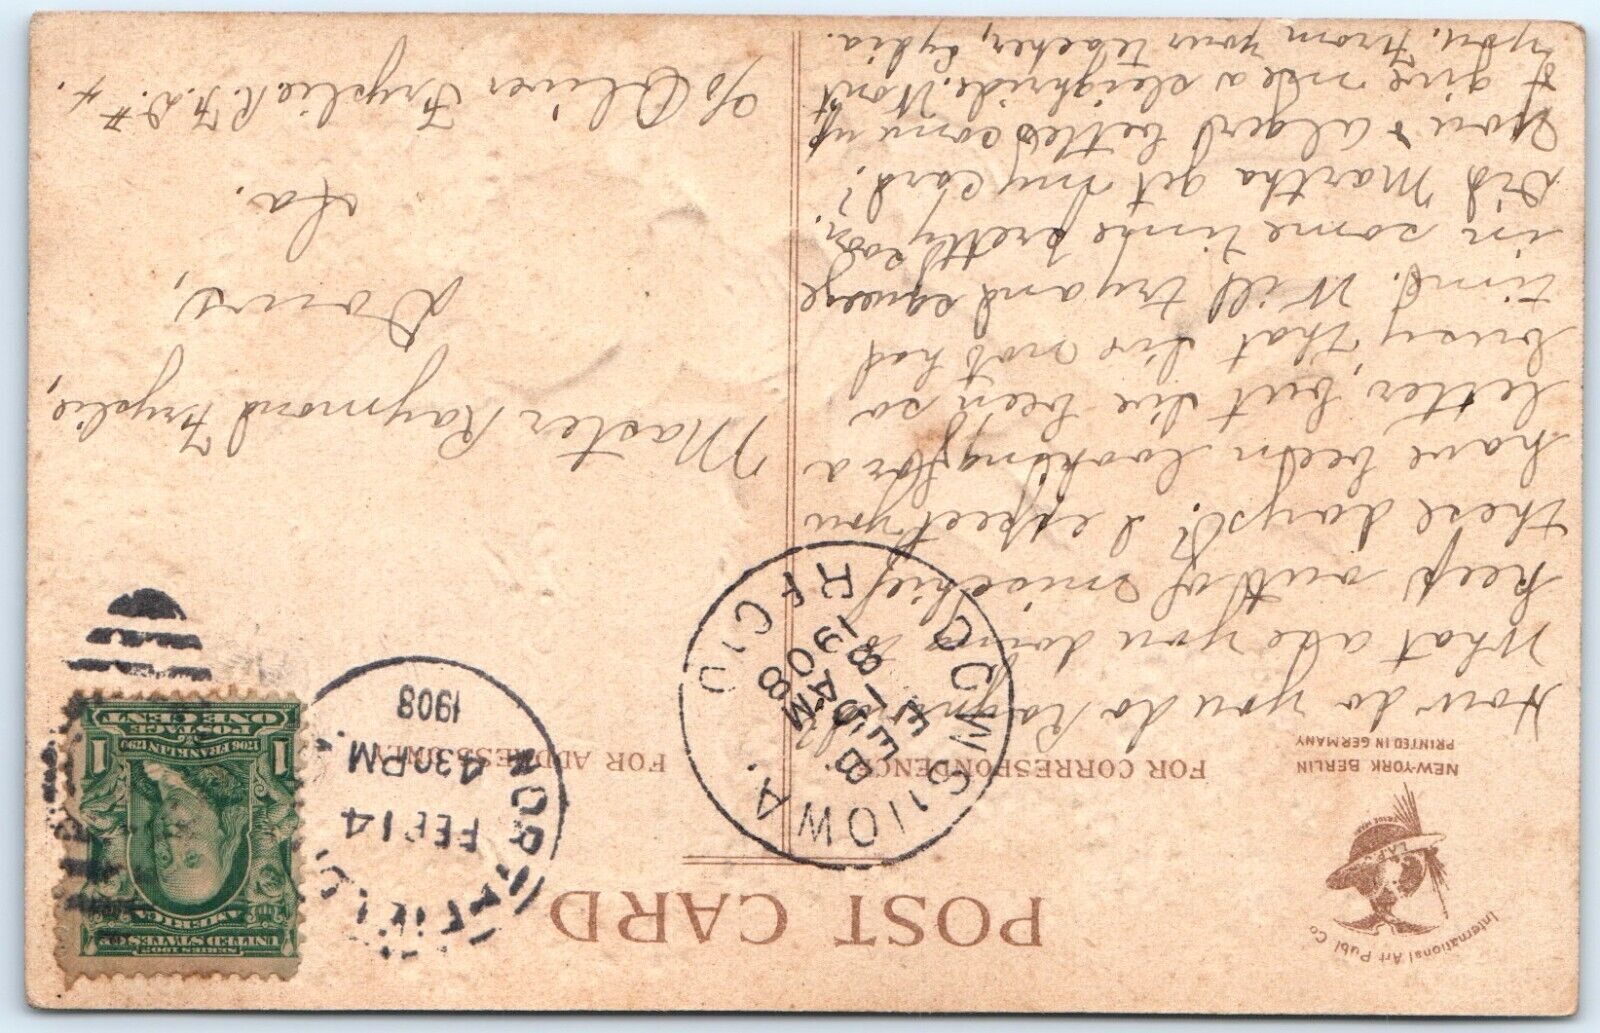 International Art Publ Co
NEW-YORK BERLIN
PRINTED IN GERMANY
POST CARD
FOR CORRESPONDENCE
FOR ADDRESS ONLY
SERIES 1902
UNITED STATES OF
AMERICA
1706 FRANKLIN 1790
POSTAGE
1 1
ONE CENT
NORTH
FEB 14
430PM
1908
DOWS IOWA.
REC'D
FEB
15
8 AM
How do you do
What are you doing to
keep out of mischief
these days? I expect you
have been looking for a
letter, but I've been so
busy, that I've not had
time. Will try and squeeze
in some time pretty soon.
Did Martha get my card?
You & Algerd better come up
& give me a sleighride. Won't
you. From your teacher, Lydia.
Master Raymond Fryslie,
Dows,
Ia.
c/o Oliver Fryslie R.F.D. # 4.